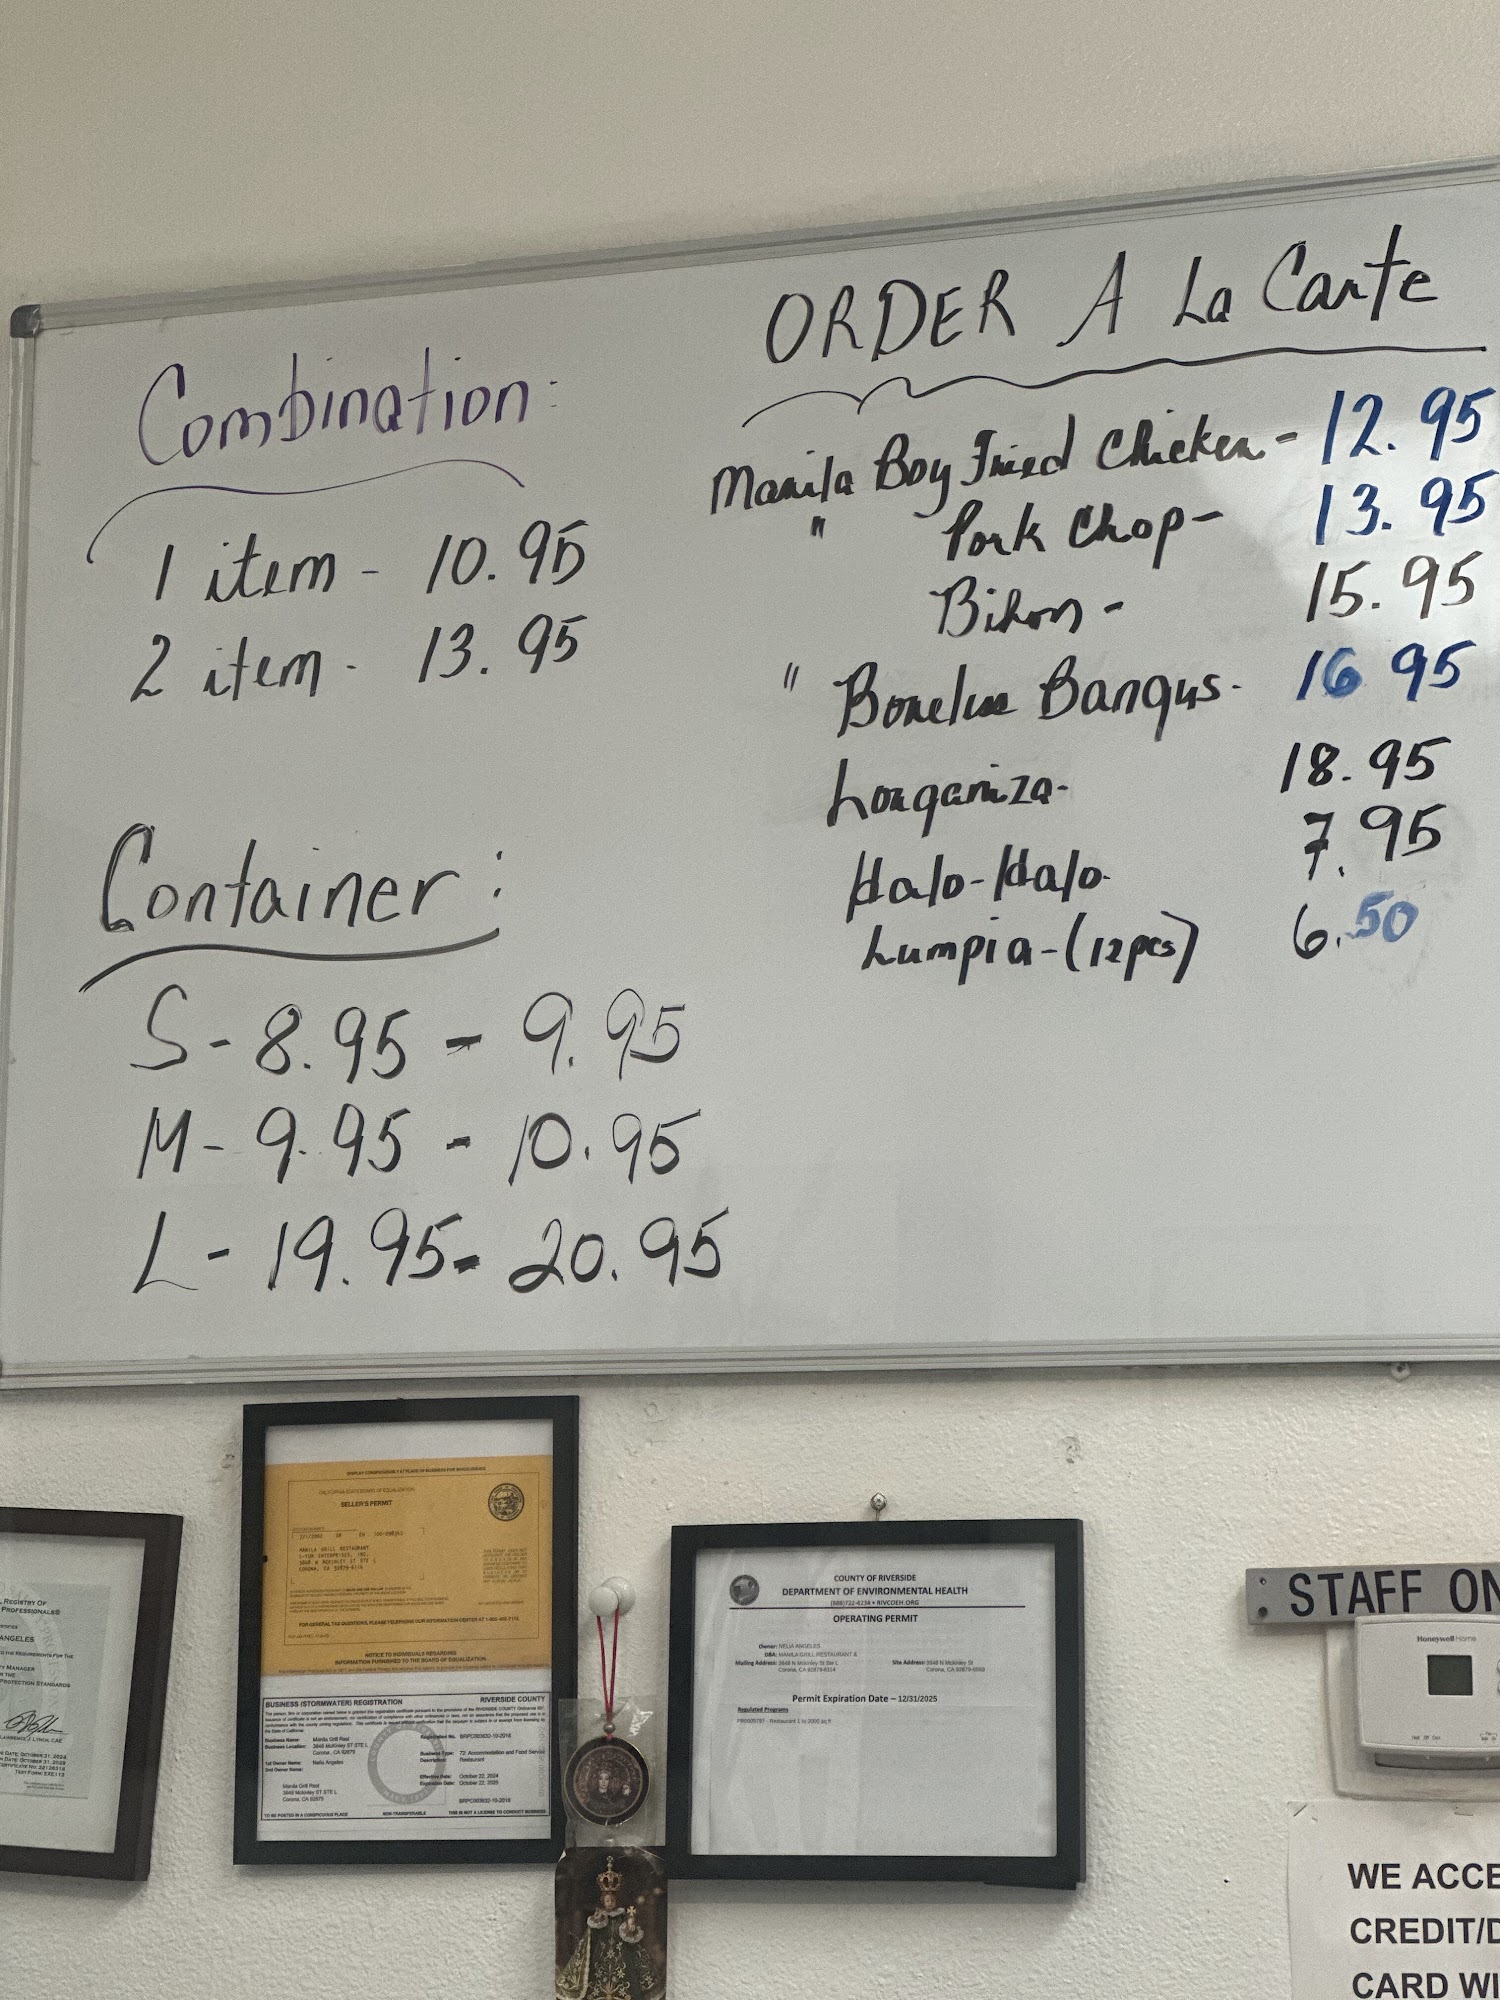 ORDER A La Carte
Manila Boy Fried Chicken - 12.95
" Pork Chop - 13.95
Bihon - 15.95
" Boneless Bangus - 16 95
Longaniza - 18.95
Halo-Halo - 7.95
Lumpia - (12pcs) 6.50
Combination:
1 item - 10.95
2 item - 13.95
Container:
S - 8.95 - 9.95
M - 9.95 - 10.95
L - 19.95 - 20.95
REGISTRY OF
PROFESSIONALS®
ANGELES
DISPLAY CONSPICUOUSLY AT PLACE OF BUSINESS FOR WHICH ISSUED
CALIFORNIA STATE BOARD OF EQUALIZATION
SELLER'S PERMIT
MANILA GRILL RESTAURANT
CORONA, CA
FOR GENERAL TAX QUESTIONS, PLEASE TELEPHONE OUR INFORMATION CENTER AT
NOTICE TO INDIVIDUALS REGARDING
INFORMATION FURNISHED TO THE BOARD OF EQUALIZATION
BUSINESS (STORMWATER) REGISTRATION RIVERSIDE COUNTY
Business Name: Manila Grill Rest
Business Location: 3848 Mckinley ST STE L
Corona, CA 92879
1st Owner Name: Nelia Angeles
2nd Owner Name:
Business Type: 72: Accommodation and Food Service
Description: Restaurant
Effective Date: October 22, 2024
Manila Grill Rest
3848 Mckinley ST STE L
Corona, CA 92879
TO BE POSTED IN A CONSPICUOUS PLACE NON-TRANSFERABLE THIS IS NOT A LICENSE TO CONDUCT BUSINESS
COUNTY OF RIVERSIDE
DEPARTMENT OF ENVIRONMENTAL HEALTH
(888)722-4234 • RIVCOEH.ORG
OPERATING PERMIT
Owner: NELIA ANGELES
DBA: MANILA GRILL RESTAURANT &
Mailing Address: 3848 N Mckinley St Ste L
Corona, CA
Site Address: 3848 N Mckinley St
Corona, CA
Permit Expiration Date – 12/31/2025
Regulated Programs
STAFF ON
Honeywell Home
WE ACCE
CREDIT/D
CARD WI